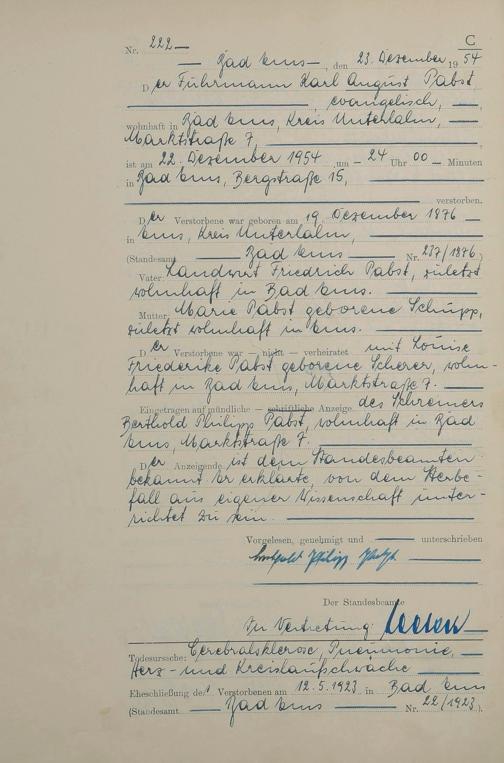 C
Nr. 222
Bad Ems, den 23. Dezember 1954
Der Fuhrmann Karl August Pabst
, evangelisch,
wohnhaft in Bad Ems, Kreis Unterlahn,
Marktstraße 7,
ist am 22. Dezember 1954 um 24 Uhr 00 Minuten
in Bad Ems, Bergstraße 15,
verstorben.
Der Verstorbene war geboren am 19. Dezember 1876
in Ems, Kreis Unterlahn,
(Standesamt Bad Ems Nr. 237/1876)
Vater: Landwirt Friedrich Pabst, zuletzt
wohnhaft in Bad Ems.
Mutter: Marie Pabst geborene Schupp,
zuletzt wohnhaft in Ems.
Der Verstorbene war — nicht — verheiratet mit Louise
Friederike Pabst geborene Scherer, wohn-
haft in Bad Ems, Marktstraße 7.
Eingetragen auf mündliche — schriftliche Anzeige des Schreiners
Berthold Philipp Pabst, wohnhaft in Bad
Ems, Marktstraße 7.
Der Anzeigende ist dem Standesbeamten
bekannt. Er erklärte, von dem Sterbe-
fall aus eigener Wissenschaft unter-
richtet zu sein.
Vorgelesen, genehmigt und unterschrieben
Berthold Philipp Pabst
Der Standesbeamte
In Vertretung:
Todesursache: Cerebralsklerose, Pneumonie,
Herz- und Kreislaufschwäche
Eheschließung des Verstorbenen am 12.5.1923 in Bad Ems
(Standesamt Bad Ems Nr. 22/1923).